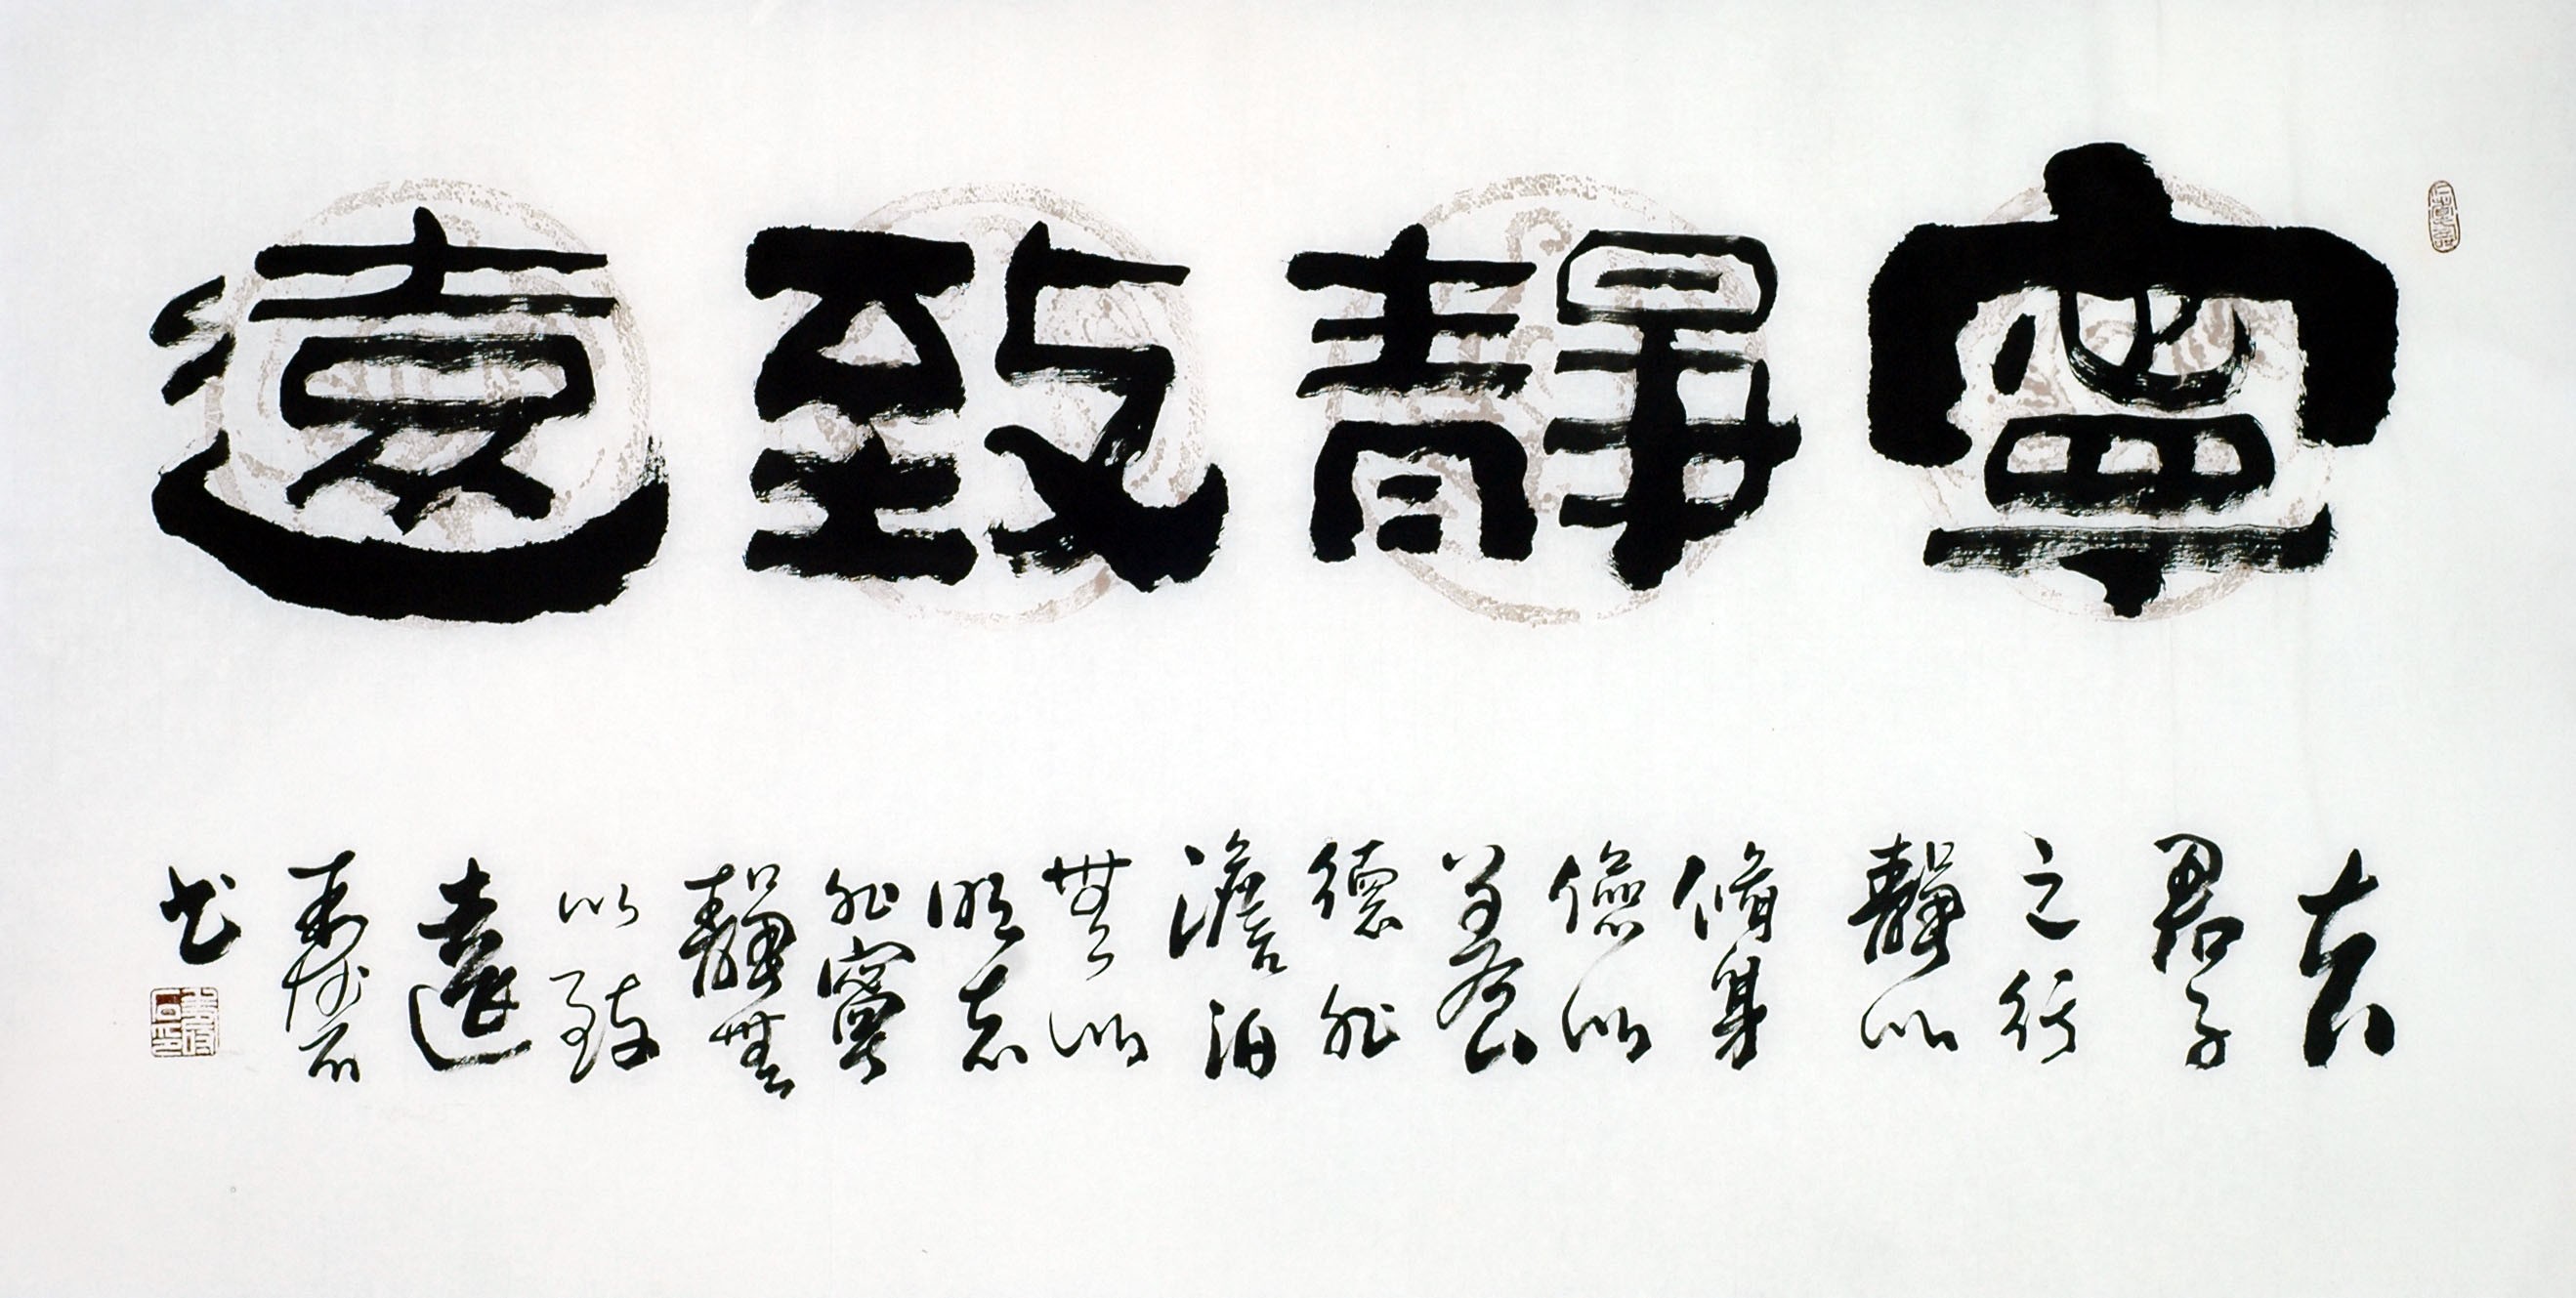 寧靜致遠
夫
君子
之行
靜以
修身
儉以
養
德非
澹泊
無以
明志
非寧
靜無
以致
遠
書